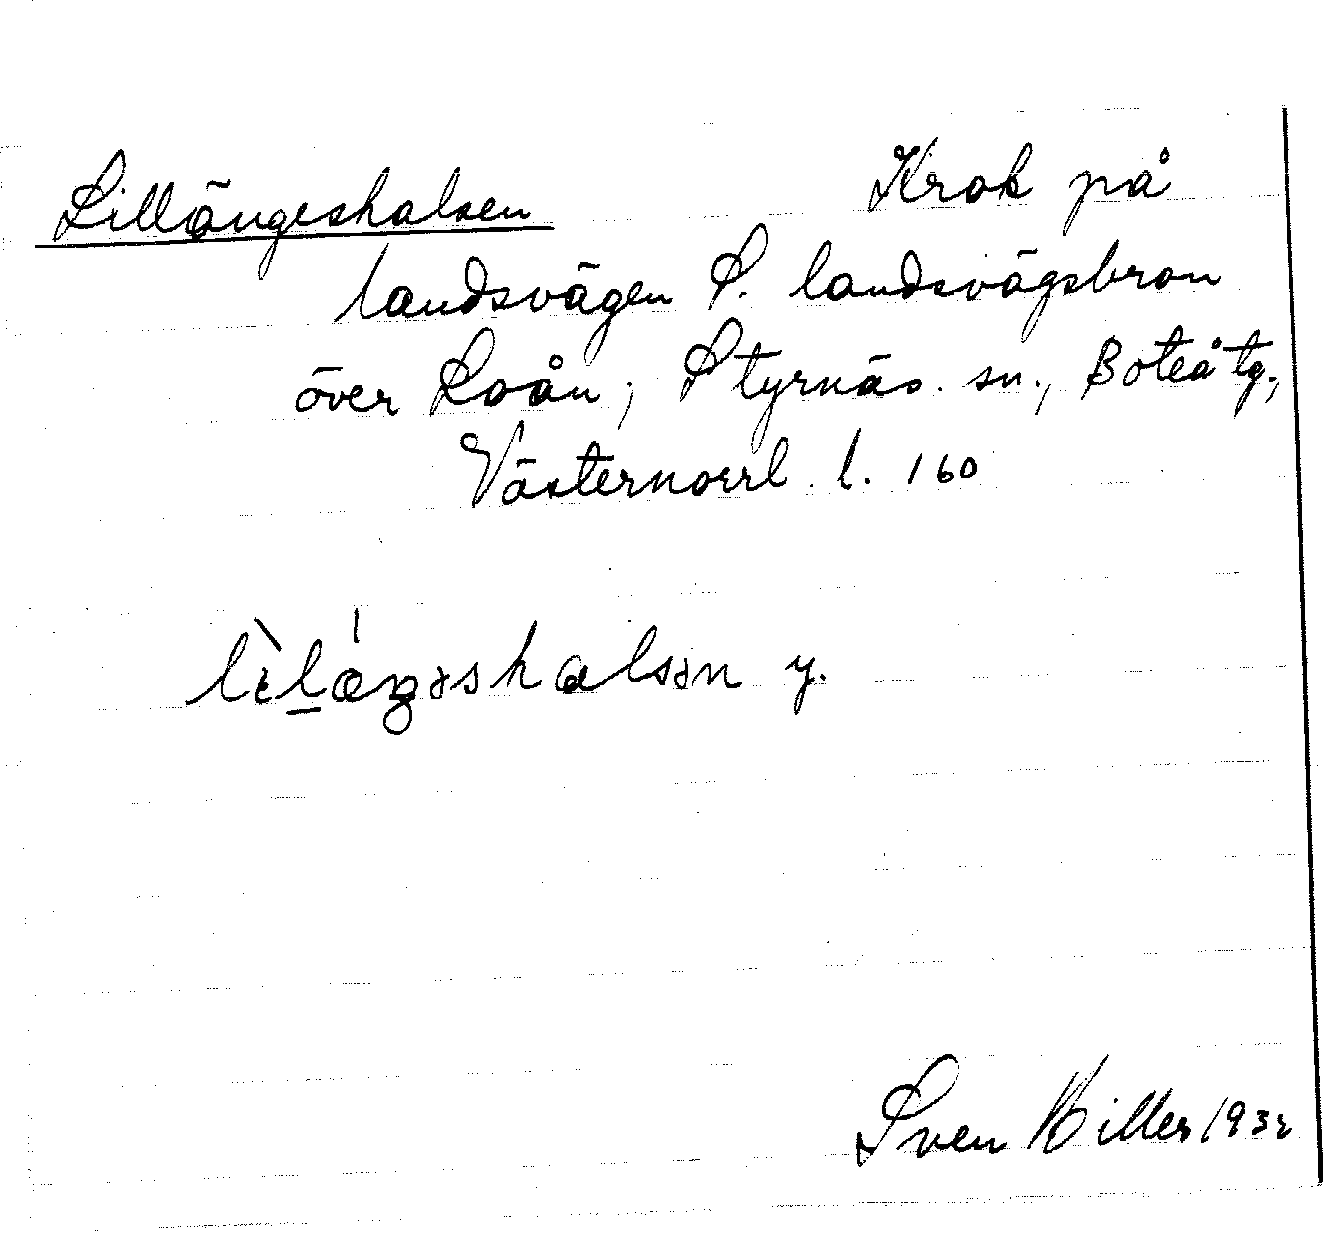 Lillängeshalsen Krok på
landsvägen S. landsvägsbron
över Loån, Styrnäs sn., Boteå tg.,
Västernorrl. l. 160
y.
Sven Hiller 1932